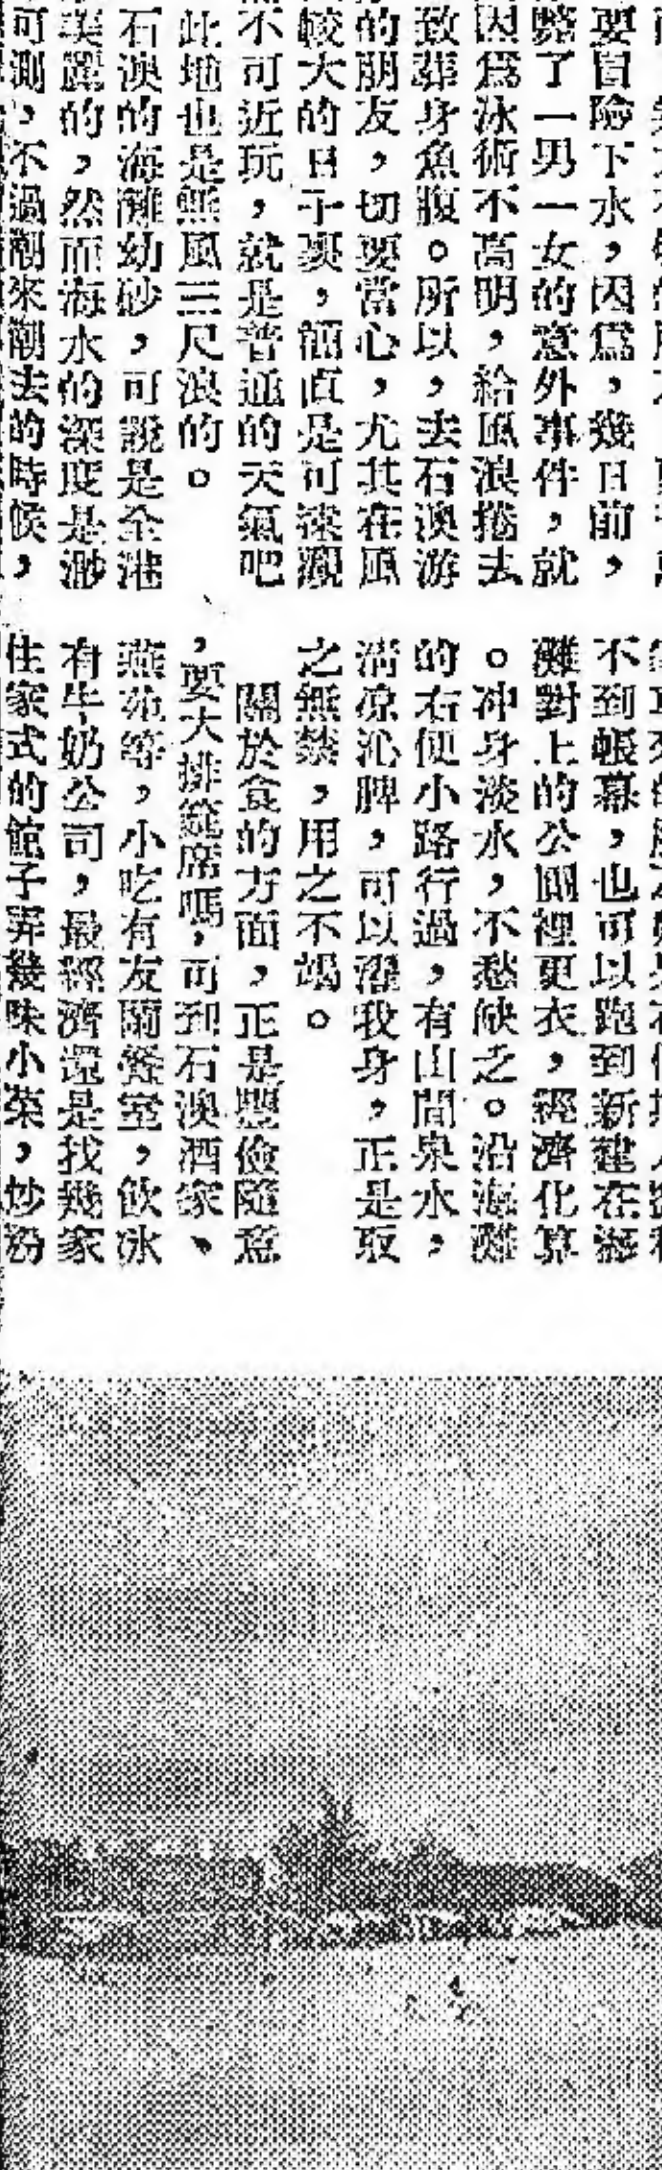 要冒險下水，因爲，幾日前，
斃了一男一女的意外事件，就
因爲泳術不高明，給風浪捲去
致葬身魚腹。所以，去石澳游
的朋友，切要當心，尤其在風
較大的日子裏，簡直是可遠觀
不可近玩，就是普通的天氣吧
此地也是無風三尺浪的。
石澳的海灘幼砂，可說是全港
美麗的，然而海水的深度是渺
可測，不過潮來潮去的時候，
不到帳幕，也可以跑到新建在海
灘對上的公園裡更衣，經濟化算
。冲身淡水，不愁缺乏。沿海灘
的右便小路行過，有山間泉水，
淸凉沁脾，可以濯我身，正是取
之無禁，用之不竭。
關於食的方面，正是豐儉隨意
，要大排筵席嗎，可到石澳酒家、
燕苑等，小吃有友蘭餐室，飲冰
有牛奶公司，最經濟還是找幾家
住家式的館子弄幾味小菜，炒粉